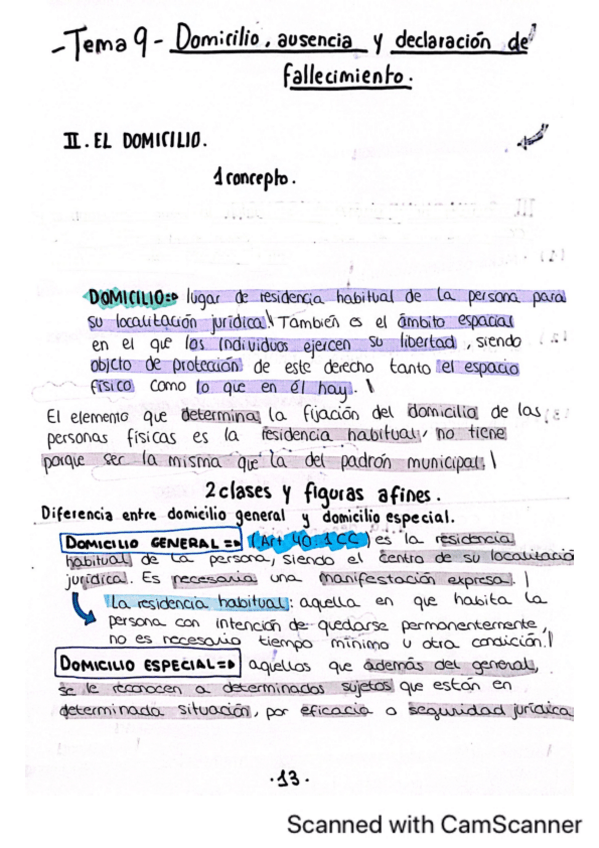 -Tema 9- Domicilio, ausencia y declaración de
fallecimiento.
II. EL DOMICILIO.
1 concepto.
DOMICILIO=> lugar de residencia habitual de la persona para
su localitación jurídica.\ También es el ámbito espacial
en el que los individuos ejercen su libertad, siendo
objeto de protección de este derecho tanto el espacio
físico como lo que en él hay. \
El elemento que determina la fijación del domicilio de las
personas físicas es la residencia habitual, no tiene
porque ser la misma que la del padrón municipal. \
2 clases y figuras afines.
Diferencia entre domicilio general y domicilio especial.
DOMICILIO GENERAL => (Art 40.1 CC) es la residencia
habitual de la persona, siendo el centro de su localitació
jurídica. Es necesaria una manifestación expresa. |
La residencia habitual: aquella en que habita la
persona con intención de quedarse permanentemente,
no es necesario tiempo mínimo u otra condición. |
DOMICILIO ESPECIAL => aquellos que además del general,
se le reconocen a determinados sujetos que están en
determinada situación, por eficacia o seguridad jurídica
.13.
Scanned with CamScanner